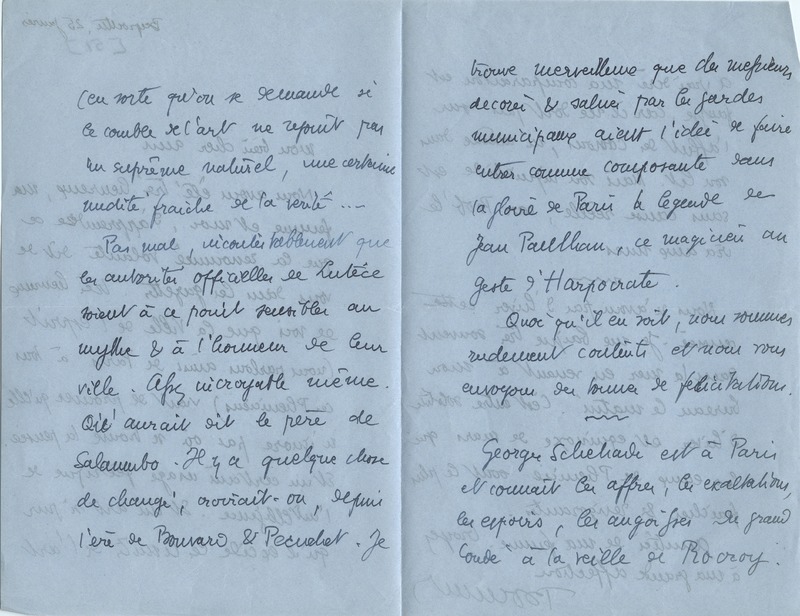 (en sorte qu'on se demande si
le comble de l'art ne rejoint pas
un suprême naturel, une certaine
nudité, fraîche de la vérité ....
Pas mal, incontestablement que
les autorités officielles de Lutèce
soient à ce point sensibles au
mythe & à l'honneur de leur
ville. Assez incroyable même.
aurait dit le père de
Salammbo. Il y a quelque chose
de changé, croirait-on, depuis
l'ère de Bouvard & Pecuchet. Je
trouve merveilleux que des messieurs
décorés & salués par les gardes
municipaux aient l'idée de faire
entrer comme composante dans
la gloire de Paris la légende de
Jean Paulhan, ce magicien au
geste d'Harpocrate.
Quoi qu'il en soit, nous sommes
rudement contents et nous vous
envoyons des tonnes de félicitations.
Georges Schehadé est à Paris
et connaît les affres, les exaltations,
les espoirs, les angoisses du grand
Condé à la veille de Rocroy.